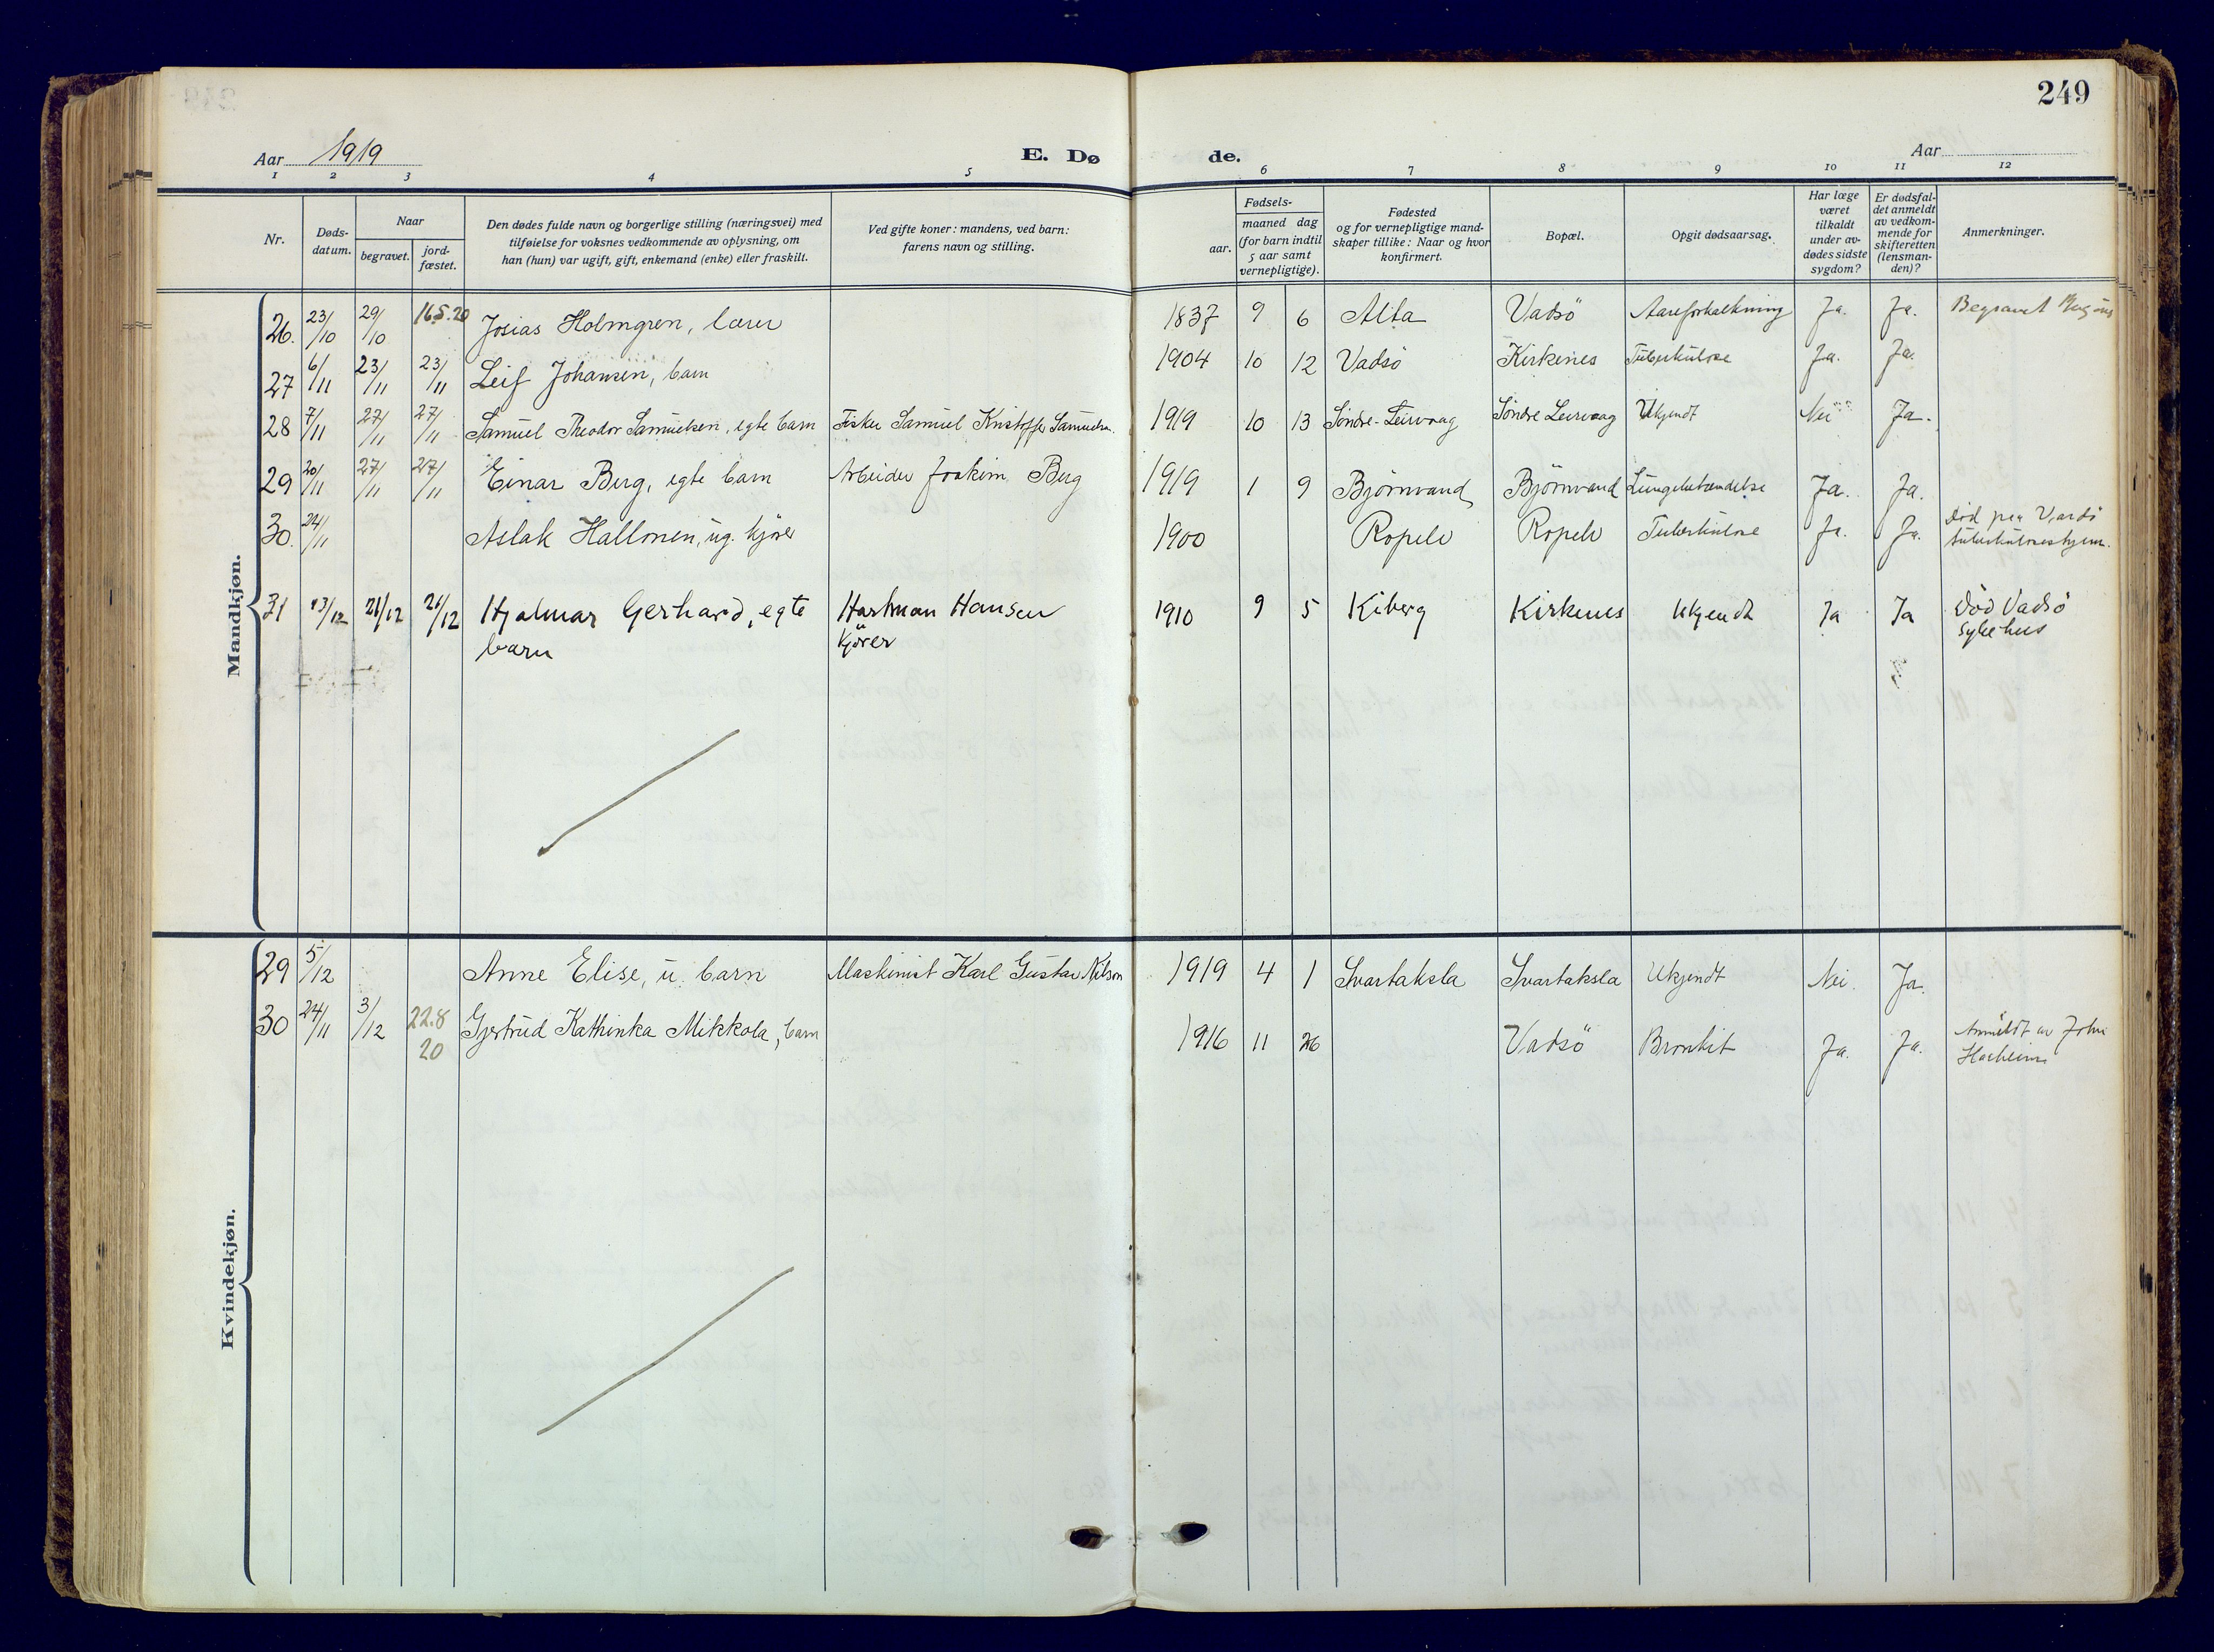 249
Aar 1919
E. Dø
de.
Aar
1 2 3 4 5 6 7 8 9 10 11 12
Nr.
Døds-
datum.
Naar
begravet.
jord-
fæstet.
Den dødes fulde navn og borgerlige stilling (næringsvei) med
tilføielse for voksnes vedkommende av oplysning, om
han (hun) var ugift, gift, enkemand (enke) eller fraskilt.
Ved gifte koner: mandens, ved barn:
farens navn og stilling.
Fødsels-
aar.
maaned dag
(for barn indtil
5 aar samt
vernepligtige).
Fødested
og for vernepligtige mand-
skaper tillike: Naar og hvor
konfirmert.
Bopæl.
Opgit dødsaarsag.
Har læge
været
tilkaldt
under av-
dødes sidste
sygdom?
Er dødsfal-
det anmeldt
av vedkom-
mende for
skifteretten
(lensman-
den)?
Anmerkninger.
Mandkjøn.
26. 23/10 29/10 16.5.20 Josias Holmgren, lærer 1837 9 6 Alta Vadsö Aareforkalkning Ja. Ja. Begravet
27 6/11 23/11 23/11 Leif Johansen, barn 1904 10 12 Vadsö Kirkenes Tuberkulose Ja. Ja.
28 7/11 27/11 27/11 Samuel Theodor Samuelsen, egte barn Fisker Samuel Kristoffer Samuelsen. 1919 10 13 Söndre-Leirvaag Söndre Leirvaag Ukjendt Nei Ja.
29 20/11 27/11 27/11 Einar Berg, egte barn Arbeider Joakim Berg 1919 1 9 Björnvand Björnvand Lungebetændelse Ja. Ja.
30. 24/11 Aslak Hallonen, ug. kjörer 1900 Ropelv Ropelv Tuberkulose Ja. Ja. Död paa Vardö
tuberkulosehjem.
31 13/12 21/12 21/12 Hjalmar Gerhard, egte
barn
Hartman Hansen
Kjörer
1910 9 5 Kiberg Kirkenes Ukjendt Ja Ja Död Vadsö
sykehus
Kvindekjøn.
29 5/12 Anne Elise, u. barn Maskinist Karl Gustav Nilson 1919 4 1 Svartaksla Svartaksla Ukjendt Nei. Ja.
30 24/11 3/12 22.8
20
Gjertrud Kathinka Mikkola, barn 1916 11 26 Vadsö Bronkit Ja. Ja. Anmeldt av John